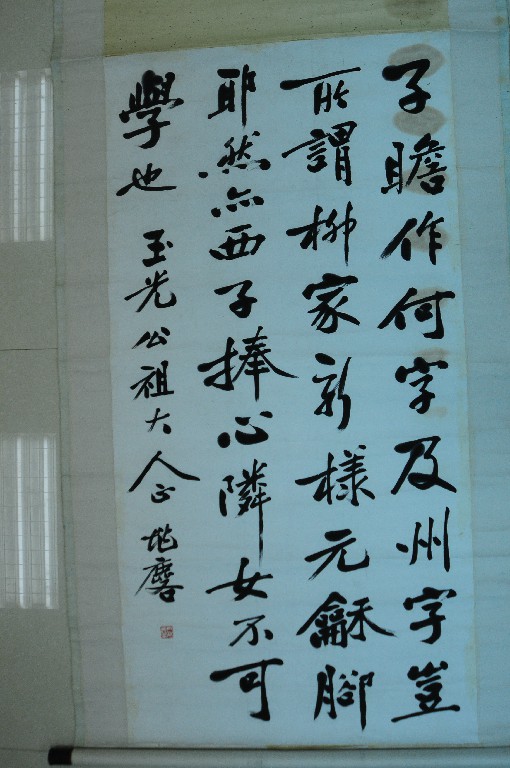 子瞻作何字及州字豈
所謂柳家新樣元龢腳
耶然亦西子捧心隣女不可
學也 玉光公祖大人正